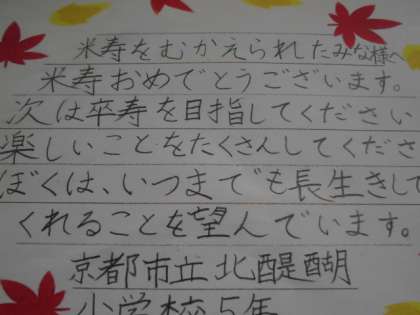 米寿をむかえられたみな様へ
米寿おめでとうございます。
次は卒寿を目指してください
楽しいことをたくさんしてくださ
ぼくは、いつまでも長生きして
くれることを望んでいます。
京都市立北醍醐
小学校5年